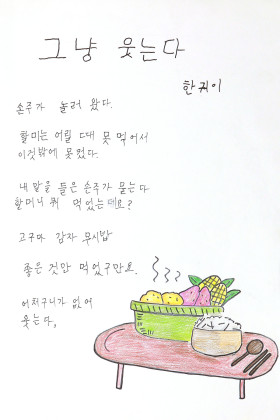 그냥 웃는다
한귀이
손주가 놀러 왔다.
할미는 어릴 때 못 먹어서
이것밖에 못 컸다.
내 말을 들은 손주가 묻는다
할머니 뭐 먹었는데요?
고구마 감자 무시밥
좋은 것만 먹었구만요.
어처구니가 없어
웃는다.